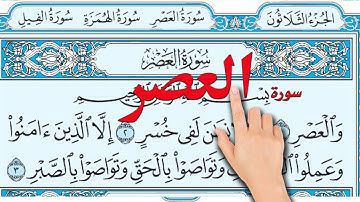 الجزء الثلاثون سورة العصر سورة الهمزة سورة الفيل
سورة العصر
سورة العصر
بِسْمِ
وَالْعَصْرِ ۝١ لَفِى خُسْرٍ ۝٢ إِلَّا الَّذِينَ ءَامَنُوا
وَعَمِلُوا وَتَوَاصَوْا بِالْحَقِّ وَتَوَاصَوْا بِالصَّبْرِ ۝٣